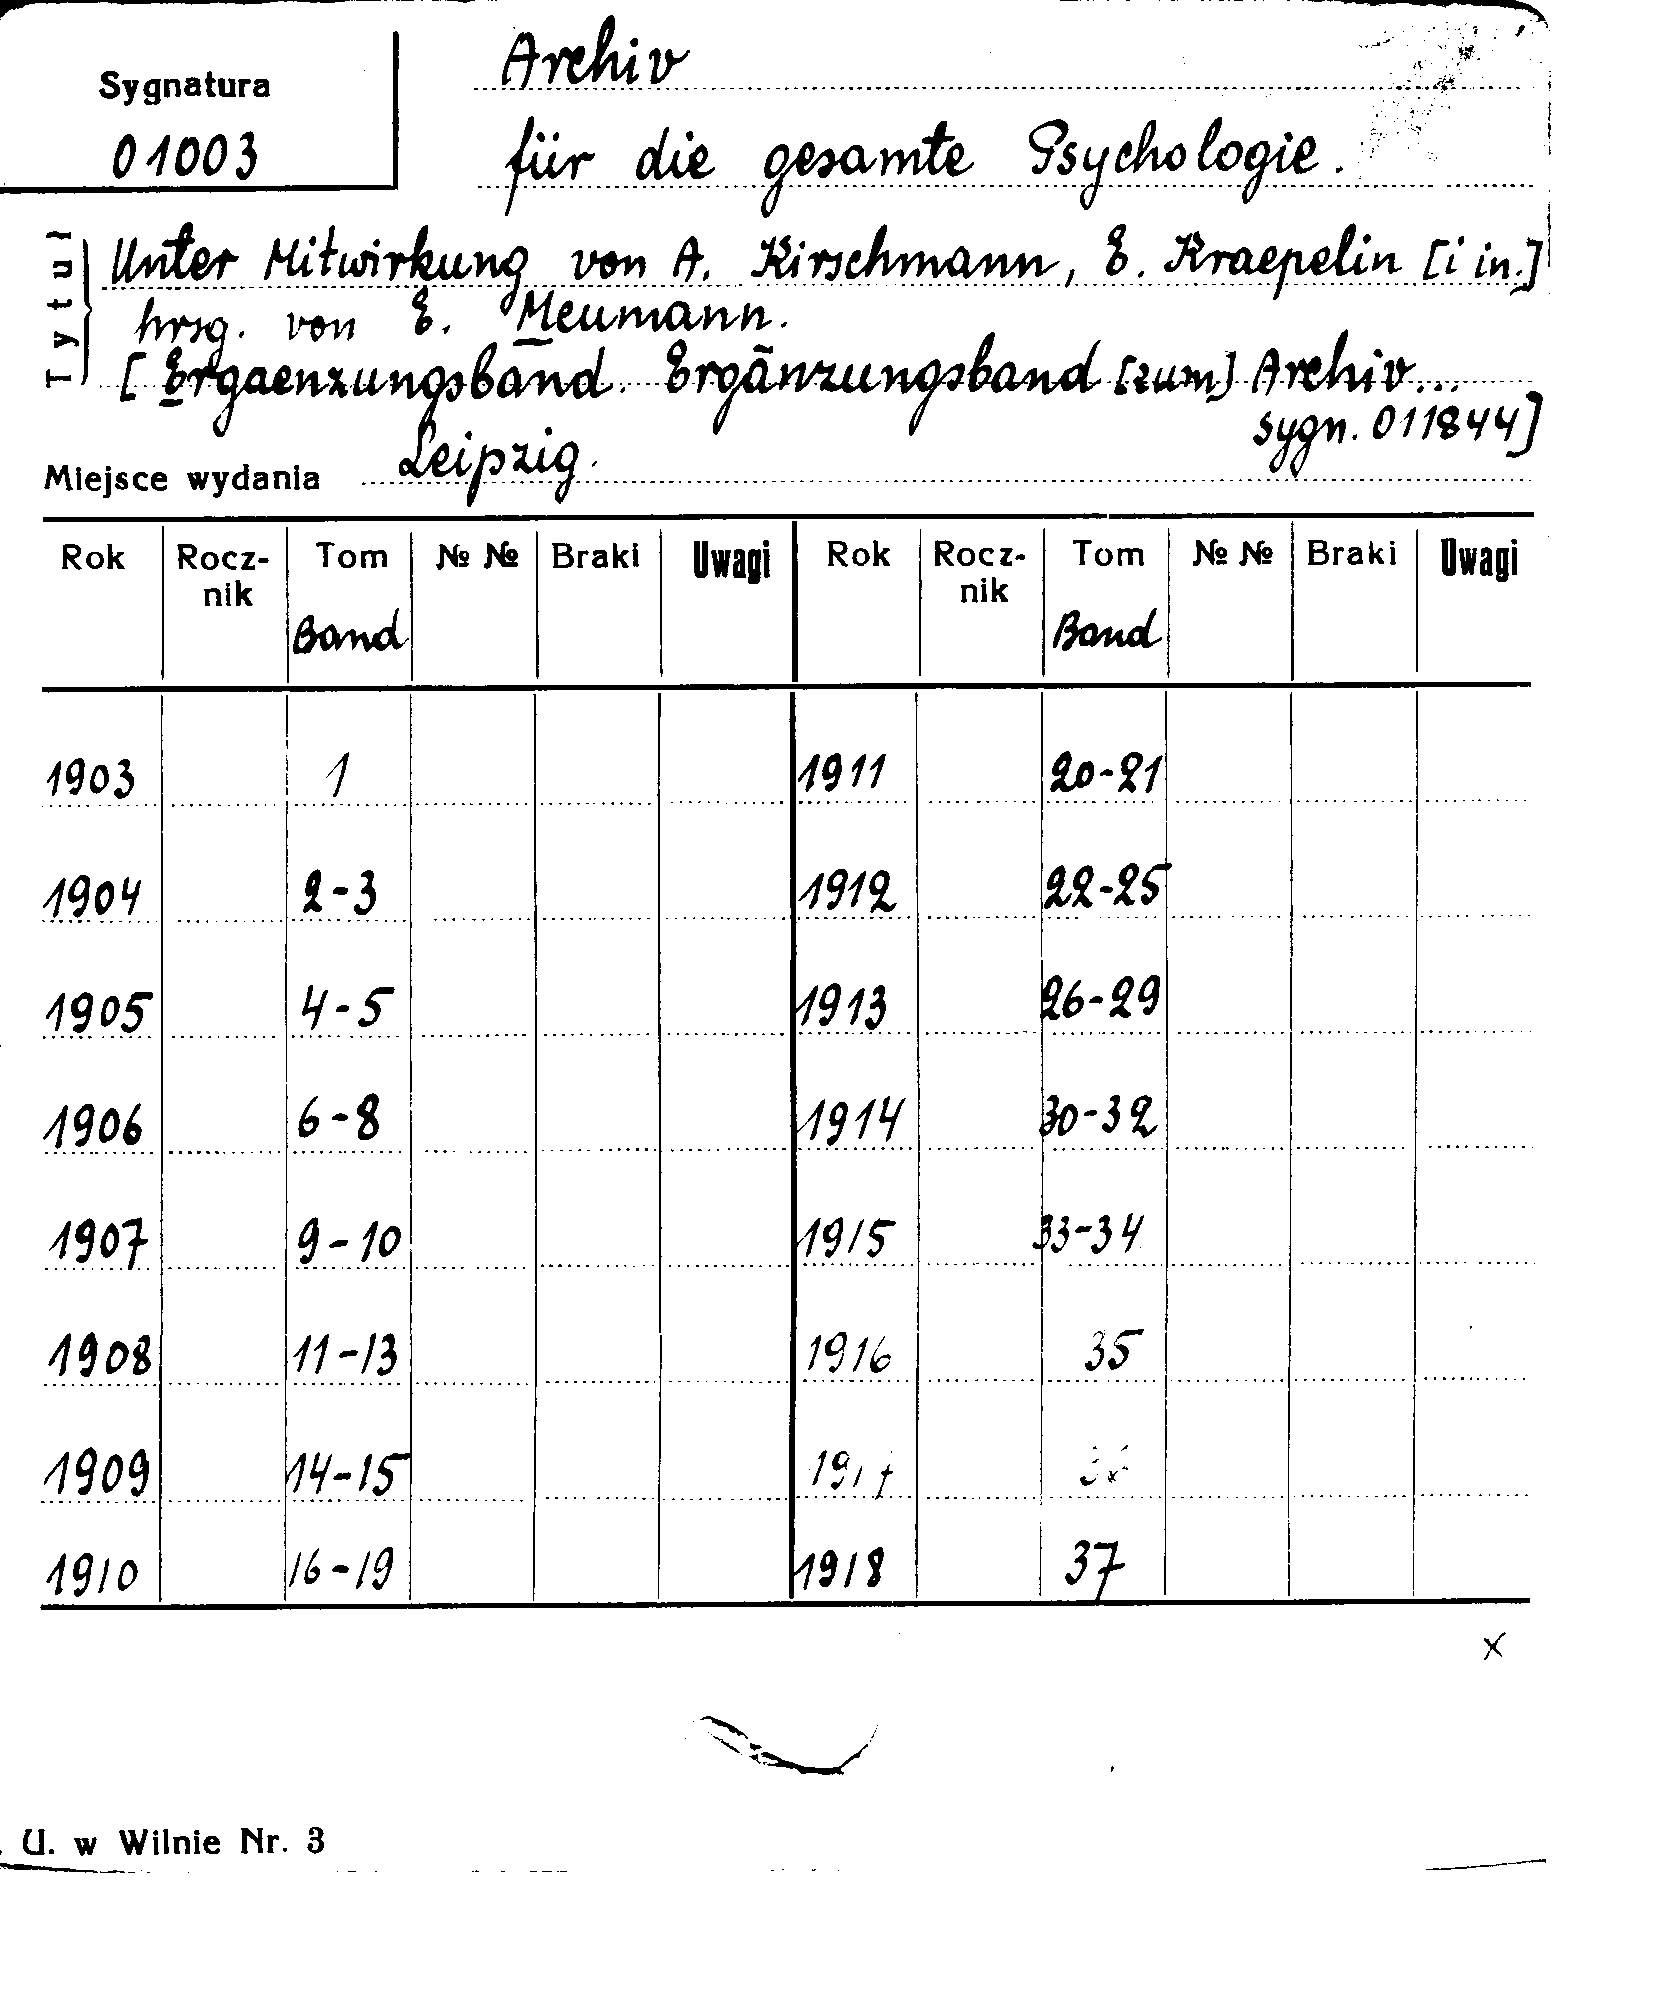 Sygnatura
01003
Archiv
für die gesamte Psychologie.
Tytuł
Unter Mitwirkung von A. Kirschmann, E. Kraepelin [i in.]
hrsg. von E. Meumann.
[Ergaenzungsband. Ergänzungsband [zum] Archiv...
sygn. 011844]
Miejsce wydania Leipzig.
Rok Rocz- Tom № № Braki Uwagi Rok Rocz- Tom № № Braki Uwagi
nik nik
Band Band
1903 1 1911 20-21
1904 2-3 1912 22-25
1905 4-5 1913 26-29
1906 6-8 1914 30-32
1907 9-10 1915 33-34
1908 11-13 1916 35
1909 14-15 1917 36
1910 16-19 1918 37
x
U. w Wilnie Nr. 3